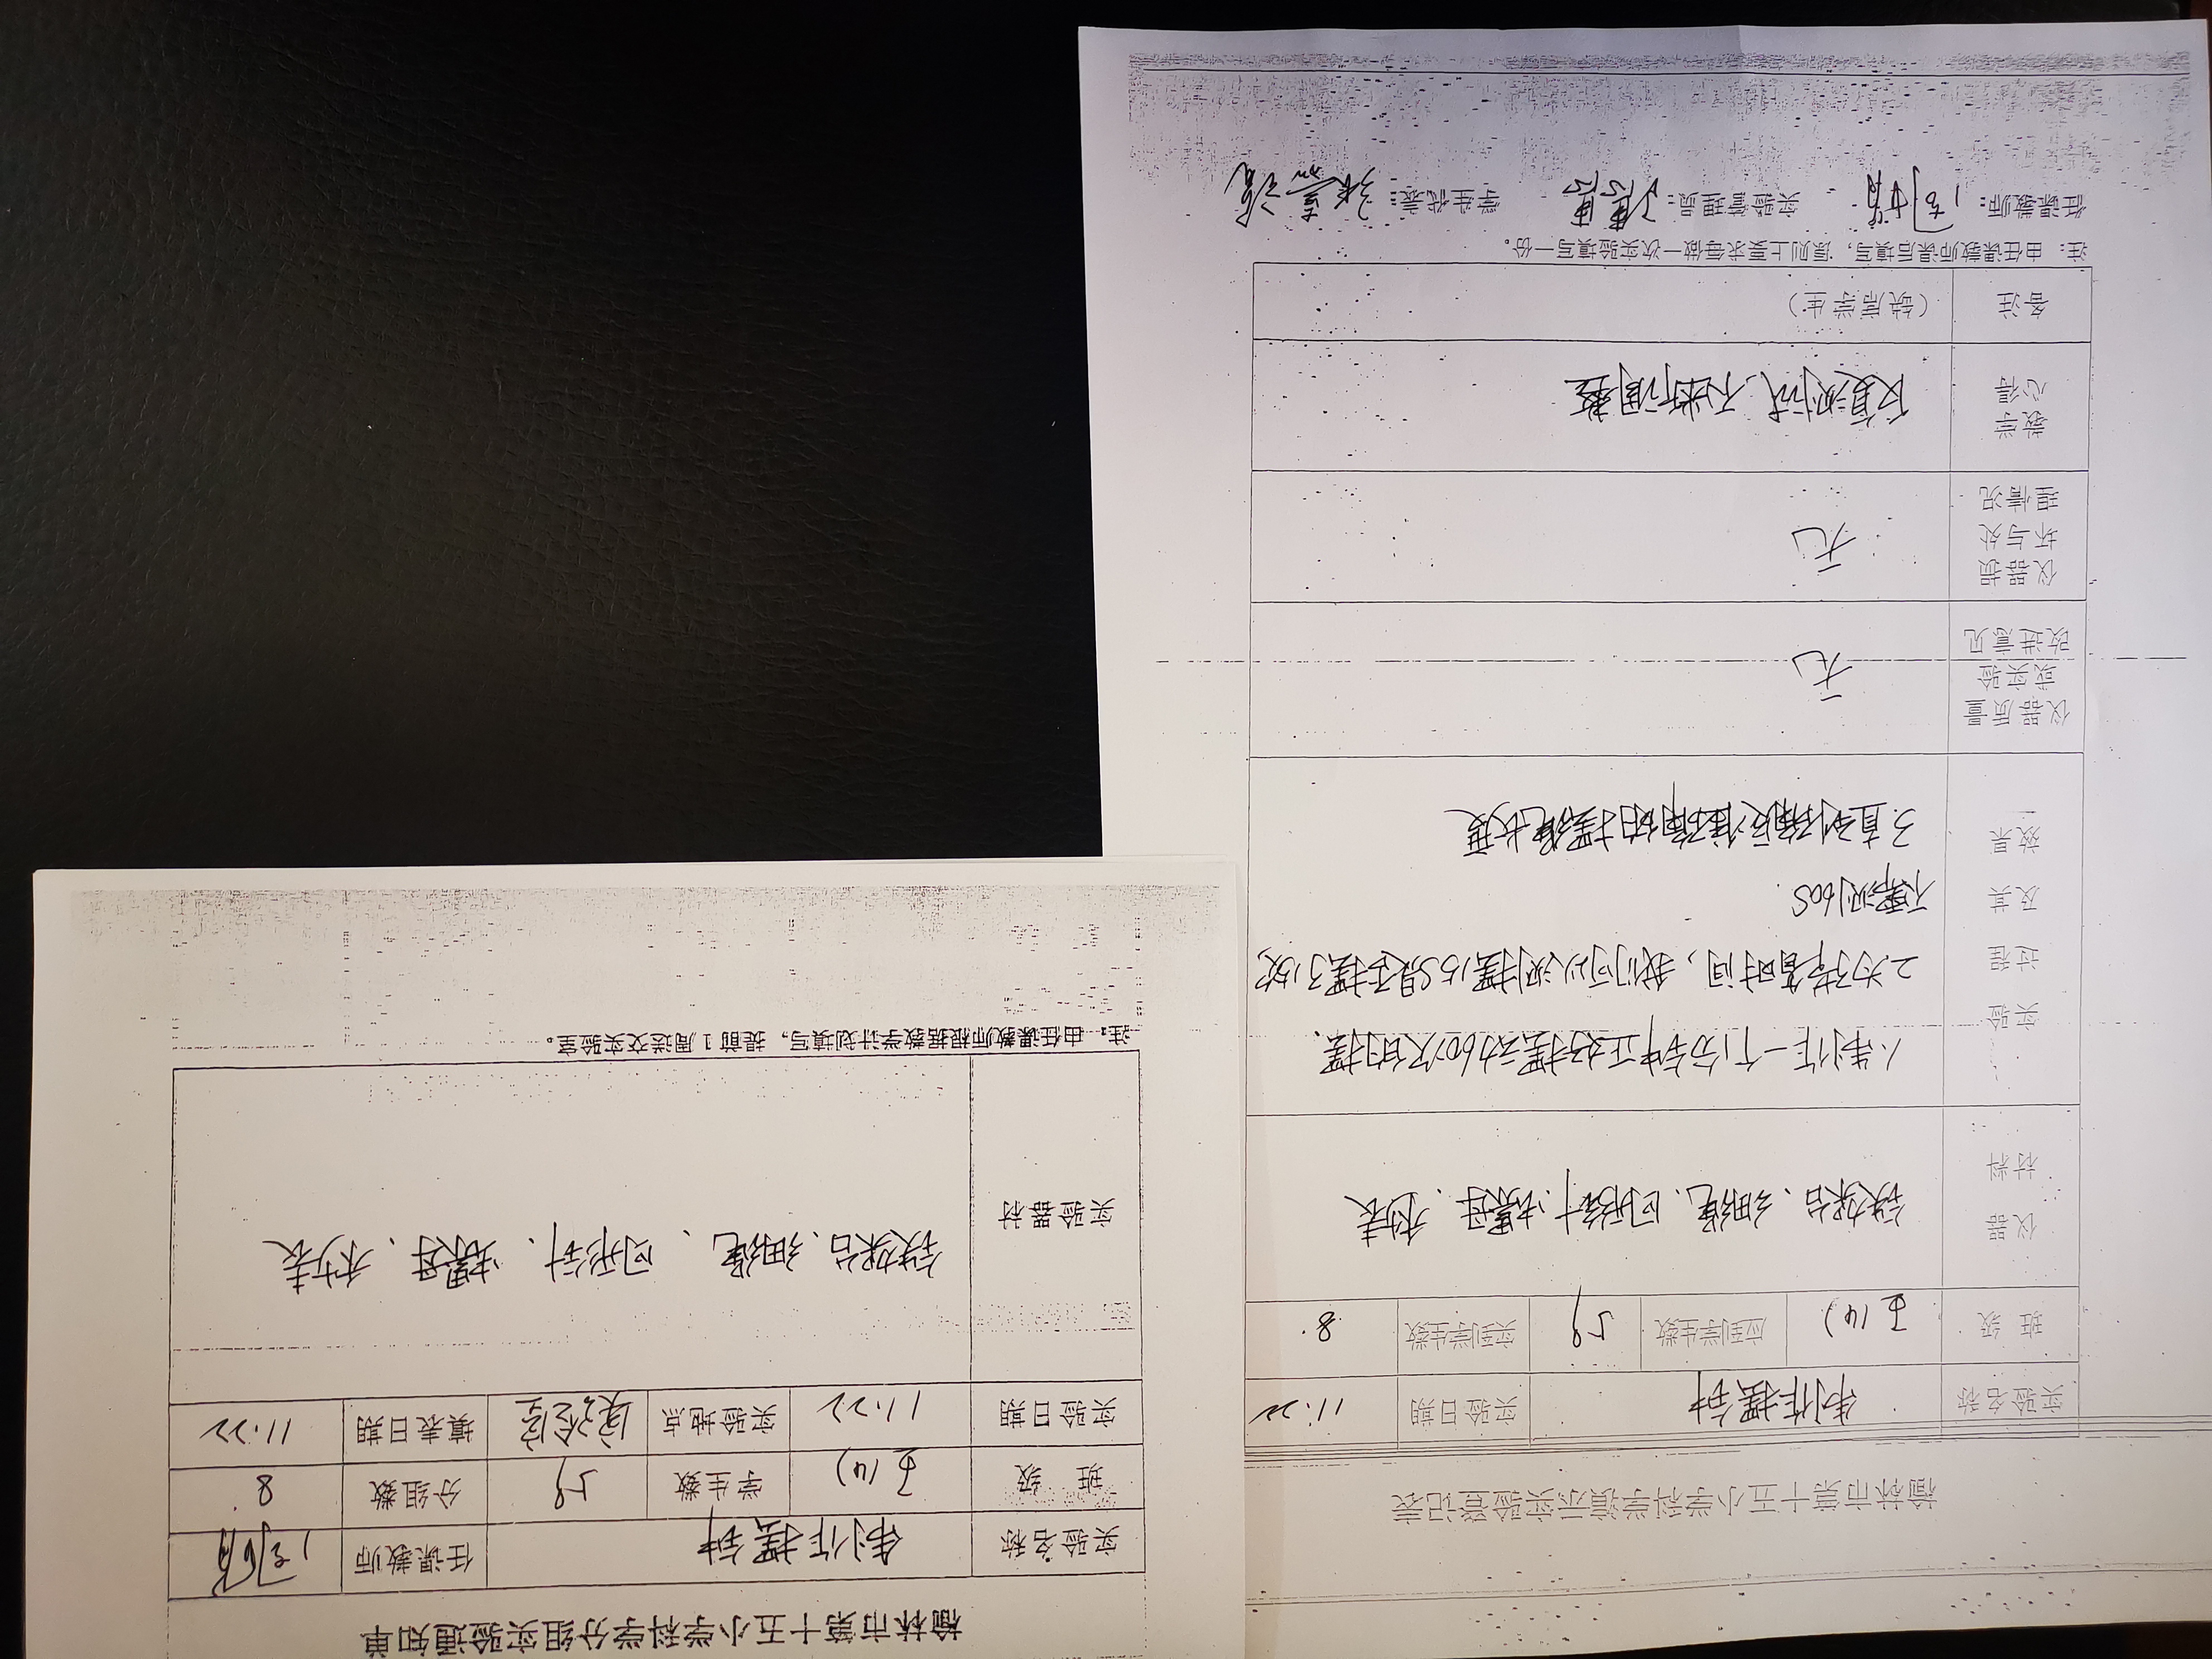 榆林市第十五小学科学分组实验通知单
实验名称 制作摆钟 任课教师
班 级 五(4) 学生数 59 分组数 8
实验日期 11.22 实验地点 实验室 填表日期 11.22
实验器材 铁架台、细绳、回形针、螺母、秒表
注：由任课教师根据教学计划填写，提前1周送交实验室。
榆林市第十五小学科学演示实验登记表
实验名称 制作摆钟 实验日期 11.22
班 级 五(4) 应到学生数 59 实到学生数 8
仪器材料 铁架台、细绳、回形针、螺母、秒表
实验过程及其效果
1.制作一个1分钟正好摆动60次的摆.
2.为了节省时间，我们可以测摆15S是否摆了15次
不需测60S
3.直到确定准确的摆绳长度
仪器质量或实验改进意见 无
仪器损坏与处理情况 无
教学心得 反复测试、不断调整
备注 （缺席学生）
注：由任课教师课后填写，原则上要求每做一次实验填写一份。
任课教师： 实验管理员： 学生代表：